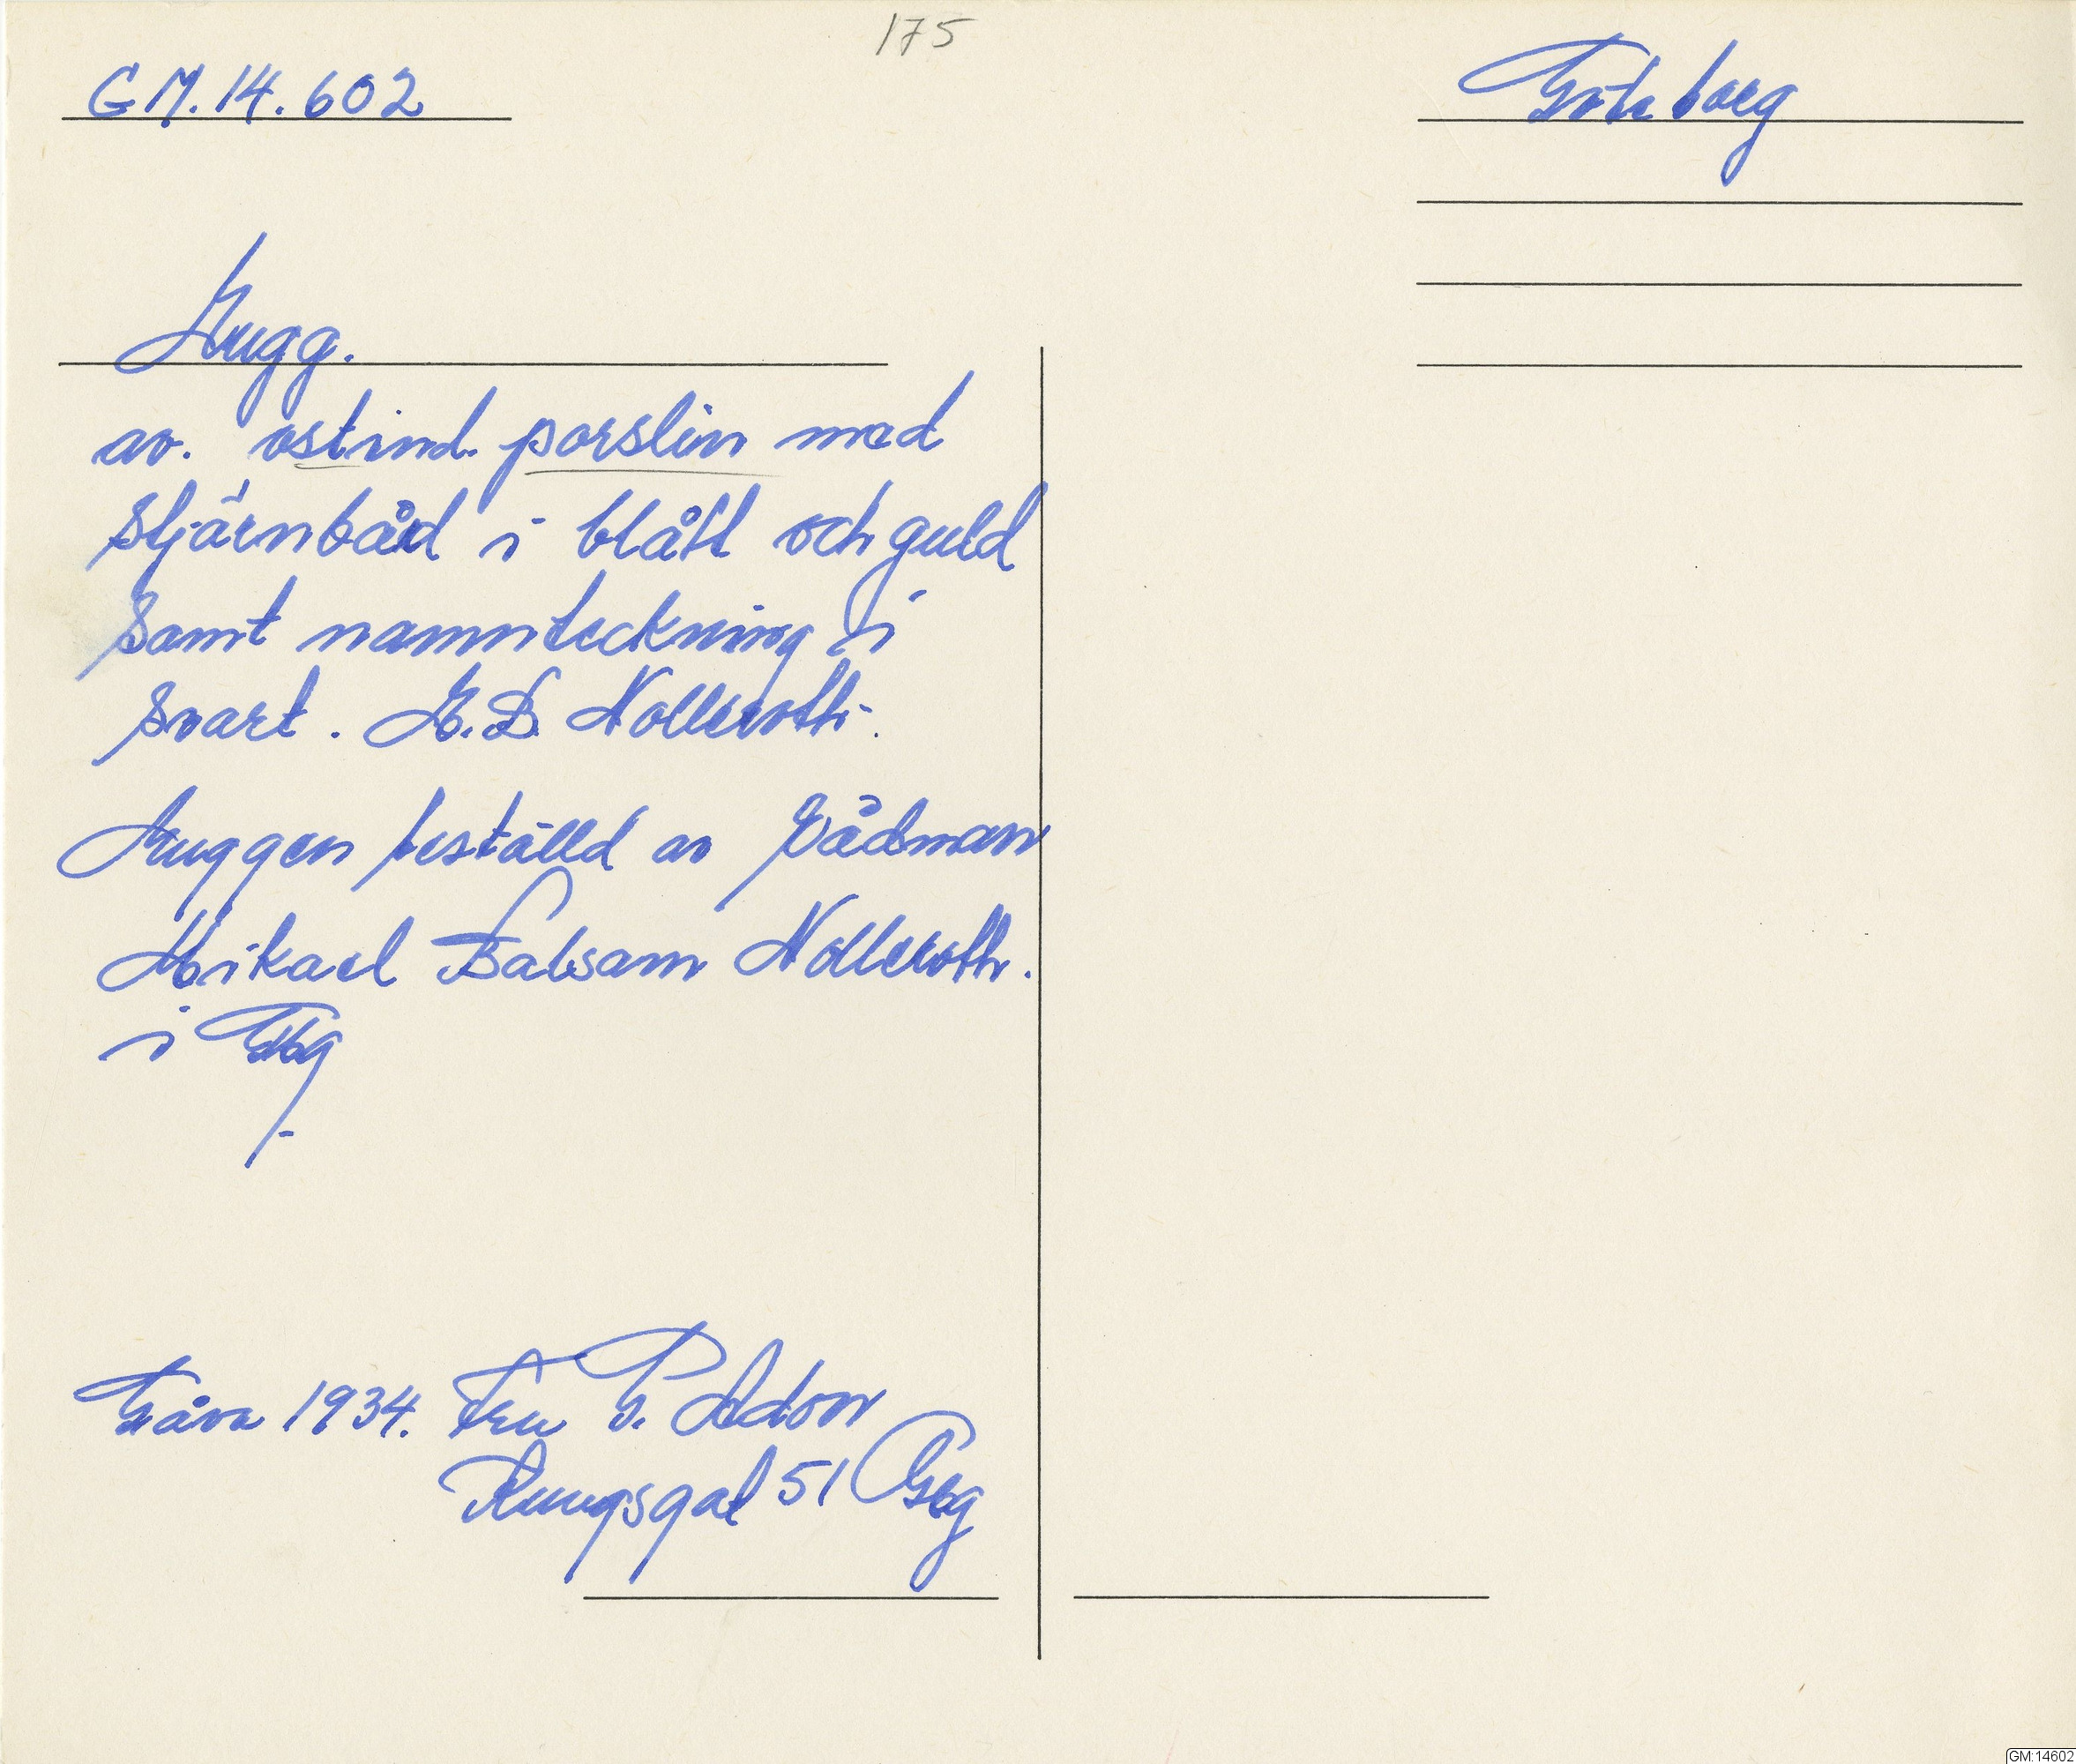 175
GM.14.602
Göteborg
Mugg.
av. ostind. porslin med
stjärnbård i blått och guld
samt namnteckning i
svart. M.B. Nolleroth.
Muggen beställd av Rådman
Mikael Balsam Nolleroth.
i Gbg
Gåva 1934. Fru G. Adon
Kungsgat 51 Gbg
GM:14602